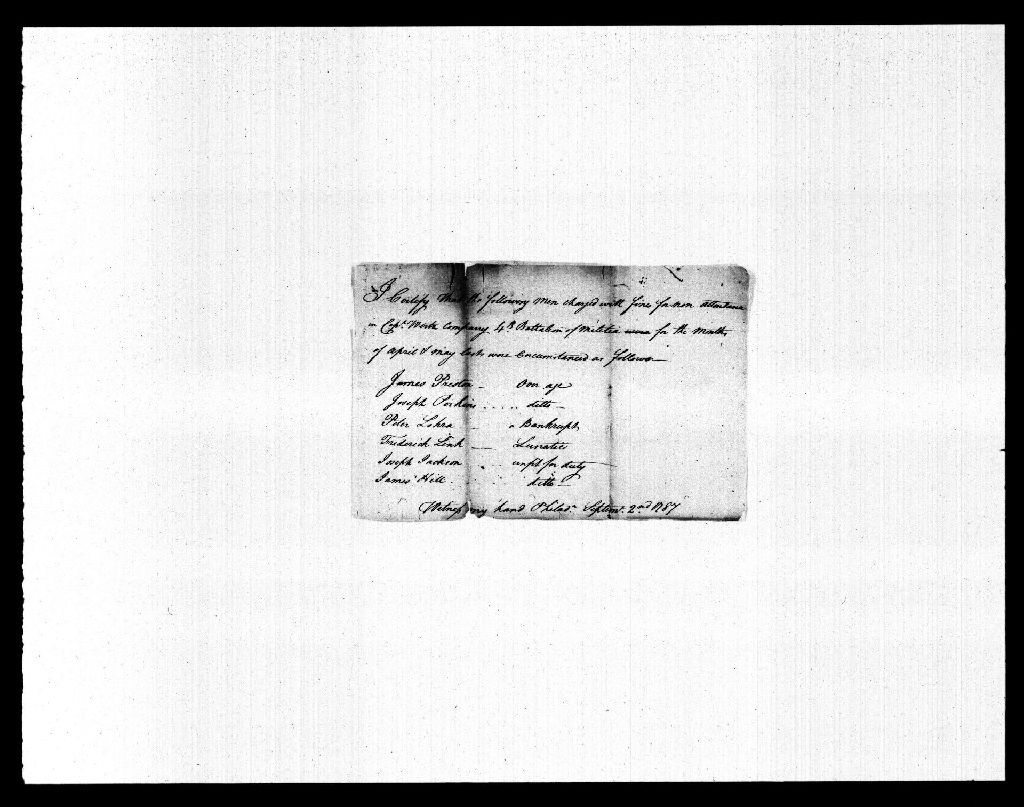 I Certify that the following Men charged with fine for non attendance
in Capt. Company 4th Battalion of Militia were for the months
of April & May last were Circumstanced as follows—
James Preston — Over age
Joseph Perkins ..... ditto —
Peter Lehra — a Bankrupt
Frederick Link — Lunatic
Joseph Jackson . . . unfit for duty —
James Hill . . . ditto —
Witness my hand Philada. Septem. 2nd 1787